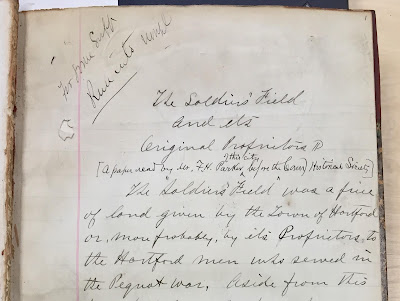 For some Supp
Ruminits
The Soldiers' Field
and its
Original Proprietors
this city
[A paper read by Mr. F. H. Parker, before the Conn Historical Society]
The "Soldiers' Field" was a piece
of land given by the Town of Hartford
or, more probably, by its Proprietors to
the Hartford men who served in
the Pequot War. Aside from this